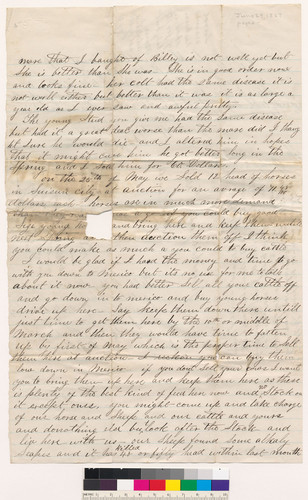 more that I baught of Billey is not well yet but
She is better than She was. She is in good order now
and looks fine. her colt had the same disease it is
not well either but better than it was it is as large a
year old as I ever saw and awful pretty.
The young Stud you give me had the same disease
but had it a great deal worse than the mare did I thaug
ht Sure he would die and I altered him in hopes
that it might cure him he got better long in the
Spring and I Sold him for 60 dollars
on the 30th of May we Sold 12 head of horses
in Suisun city at auction for an average of
dollars each horses are in much more demand
you could buy good
young and bring here and keep them until
first of then auction them off I think
you could make as much as you could to buy cattle
I would be glad if I had the money and time to go
with you down to Mexico but its no use for me to talk
about it now. you had better Sell all your cattle off
and go down in to mexico and buy young horses
drive up here Say Keep them down there untill
just time to get them here by the 1st or middle of
March and then they would have time to fatten
up by first of May which is the proper time to Sell
them here at auction. I reckon you can buy them
low down in Mexico if you dont Sell your I want
you to bring them up here and Keep them here as there
is plenty of the best kind of feed here now and not Stock on
it yet. you might come up and take charge
of our horses and Sheep and our cattle and yours
and do nothing else but look after the Stock and
liv here with us. our Sheep found Some alkaly
Sapice and it has killed 40 or fifty head within last month